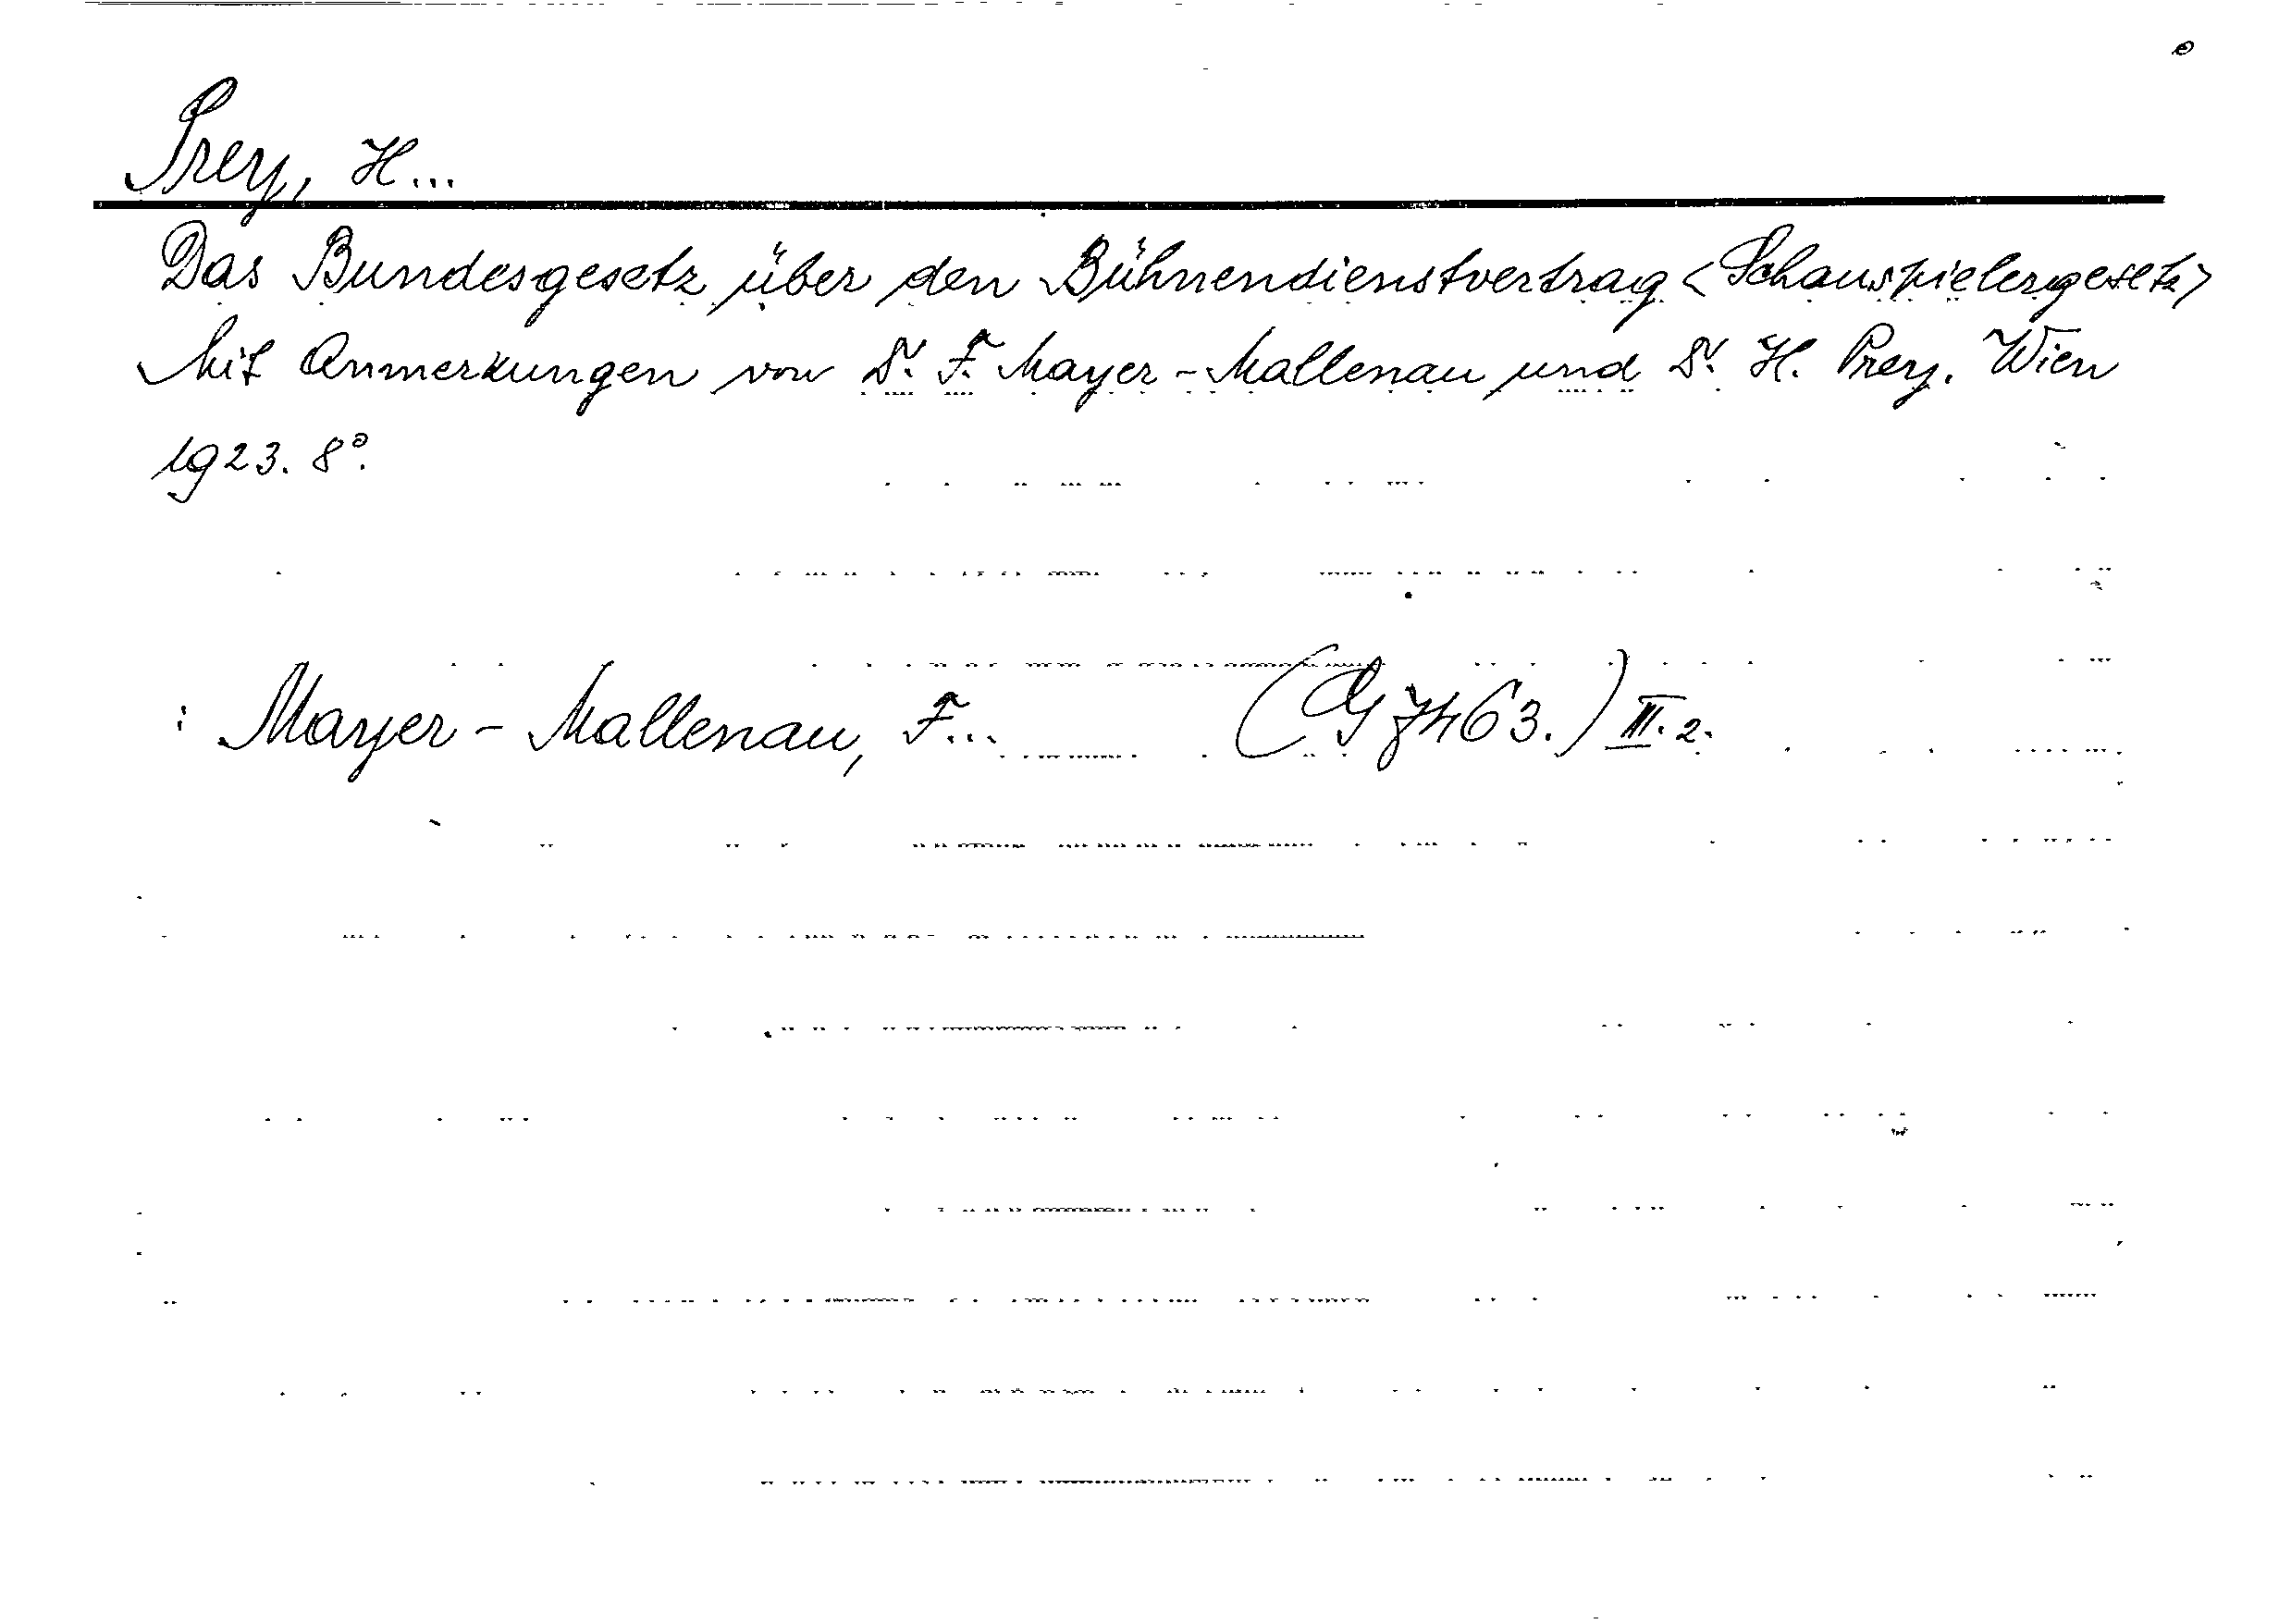 Prey, H...
Das Bundesgesetz über den Bühnendienstvertrag <Schauspielergesetz>
Mit Anmerkungen von Dr. F. Mayer-Mallenau und Dr. H. Prey. Wien
1923. 8°.
: Mayer - Mallenau, F... (G 7463.) III. 2.